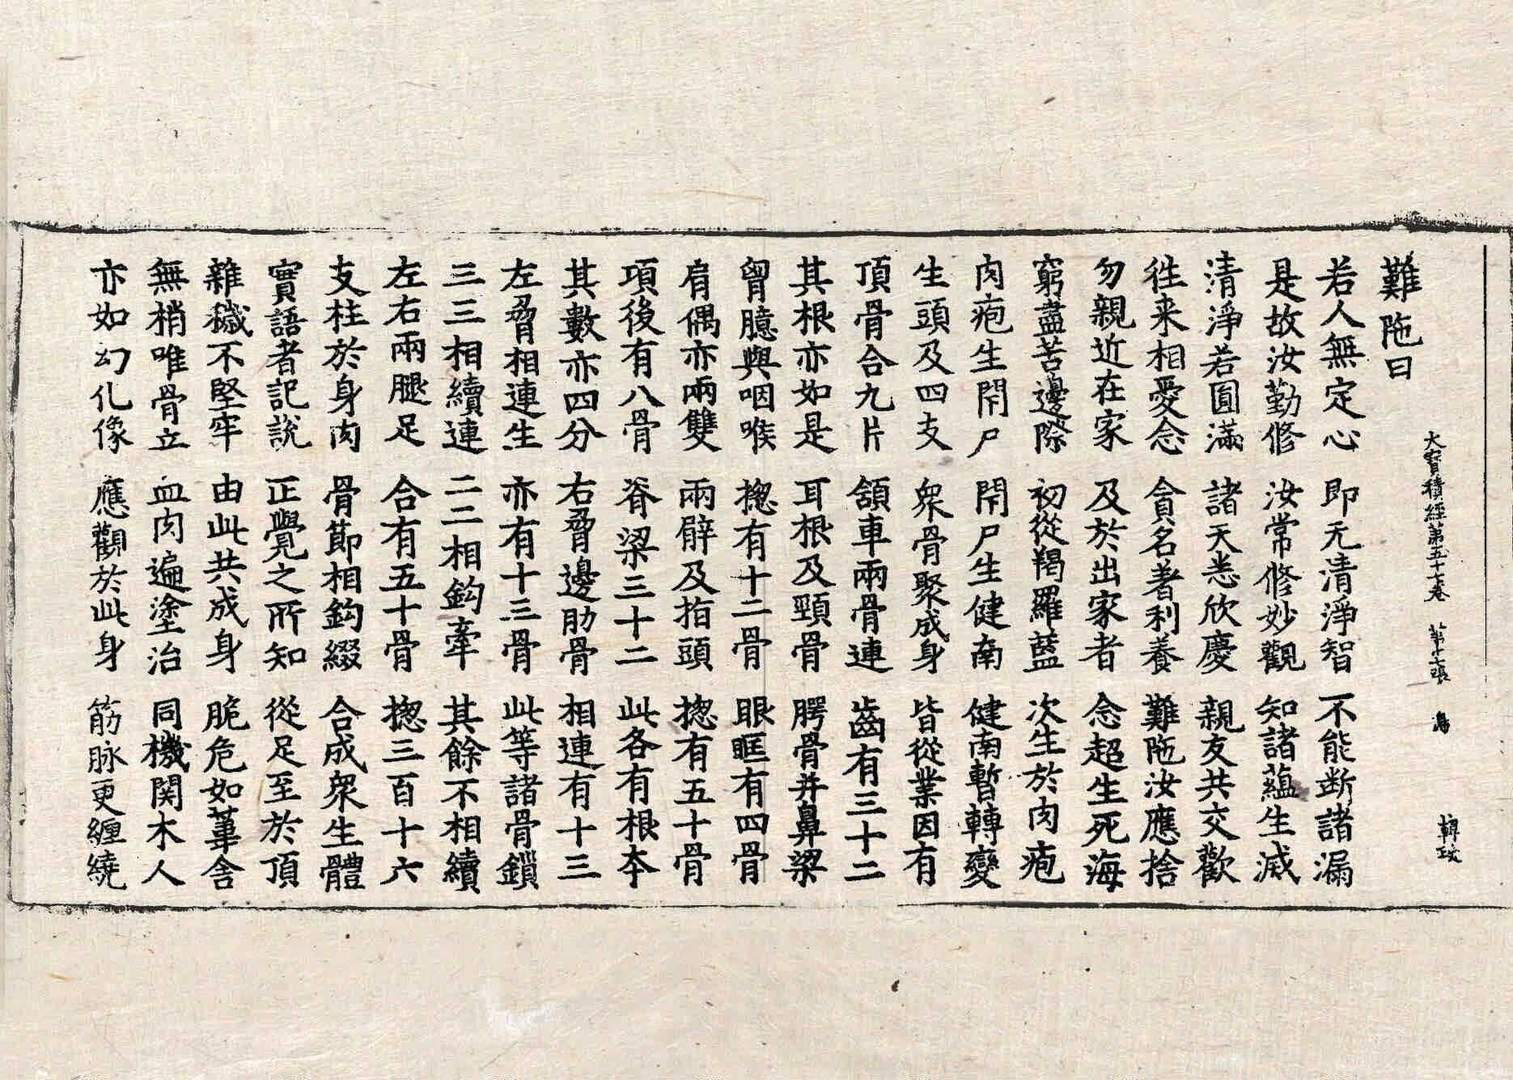 大寳積經第五十七卷 第十七張 鳥
韓政
難陁曰
若人無定心 即无清淨智 不能断諸漏
是故汝勤修 汝常修妙觀 知諸蘊生滅
清淨若圓滿 諸天悉欣慶 親友共交歡
徃来相愛念 貪名著利養 難陁汝應捨
勿親近在家 及於出家者 念超生死海
窮盡苦邊際 初從羯羅藍 次生於肉疱
肉疱生閇尸 閇尸生健南 健南暫轉變
生頭及四支 衆骨聚成身 皆從業因有
頂骨合九片 頷車兩骨連 齒有三十二
其根亦如是 耳根及頸骨 腭骨并鼻梁
胷臆與咽喉 揔有十二骨 眼眶有四骨
肩偶亦兩雙 兩臂及拍頭 揔有五十骨
項後有八骨 脊梁三十二 此各有根本
其數亦四分 右脅邊肋骨 相連有十三
左脅相連生 亦有十三骨 此等諸骨鎖
三三相續連 二二相鈎牽 其餘不相續
左右兩腿足 合有五十骨 揔三百十六
支柱於身肉 骨節相鈎綴 合成衆生體
實語者記說 正覺之所知 從足至於頂
雜穢不堅牢 由此共成身 脆危如葦舍
無梢唯骨立 血肉遍塗治 同機関木人
亦如幻化像 應觀於此身 筋脉更纏繞